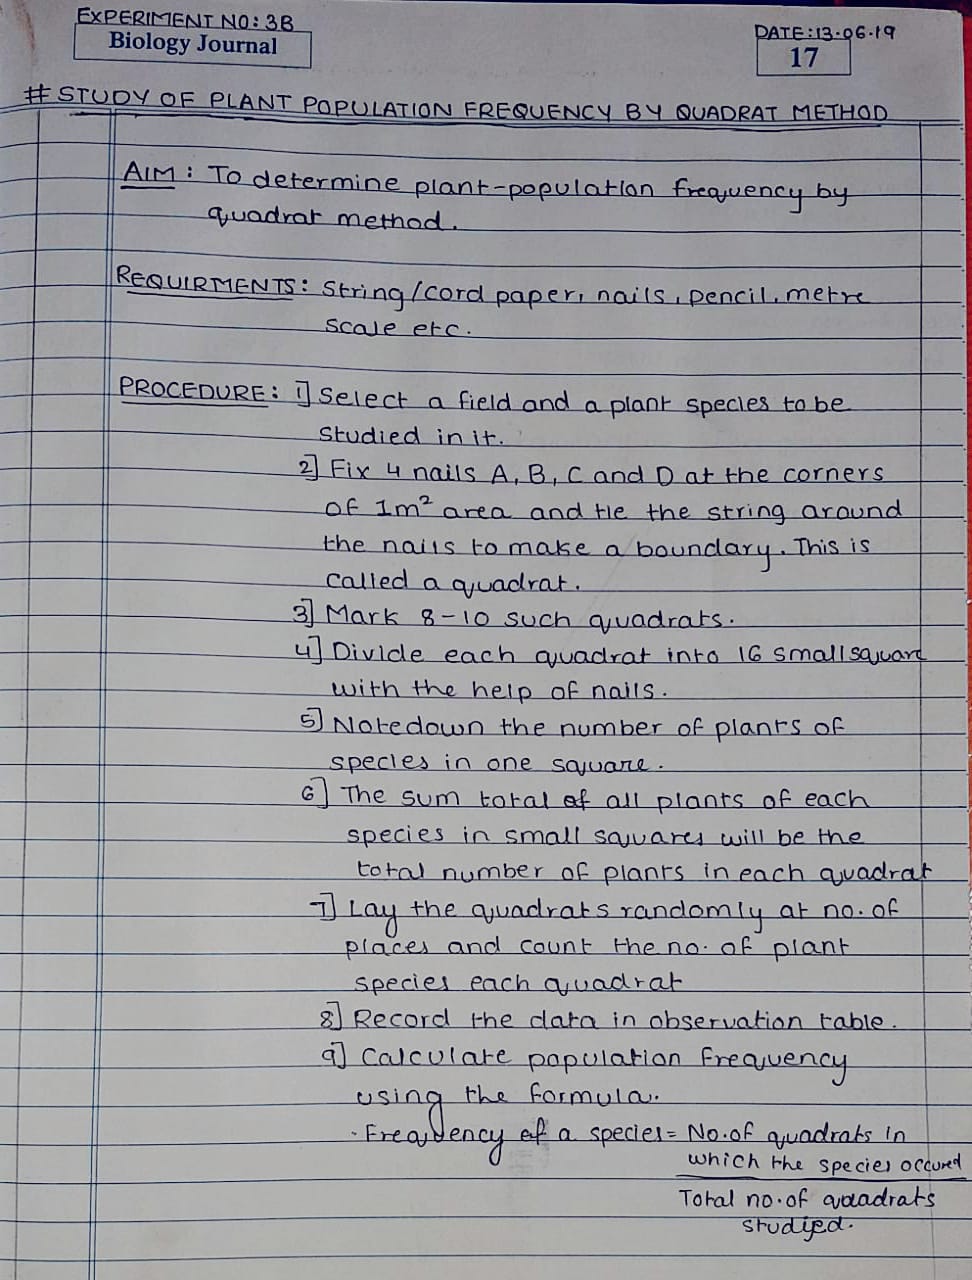 EXPERIMENT NO: 3B
Biology Journal
DATE: 13.06.19
17
# STUDY OF PLANT POPULATION FREQUENCY BY QUADRAT METHOD
AIM: To determine plant-population frequency by
quadrat method.
REQUIRMENTS: String/cord paper, nails, pencil, metre
scale etc.
PROCEDURE: 1] Select a field and a plant species to be
studied in it.
2] Fix 4 nails A, B, C and D at the corners
of 1m² area and tie the string around
the nails to make a boundary. This is
called a quadrat.
3] Mark 8-10 such quadrats.
4] Divide each quadrat into 16 small square
with the help of nails.
5] Notedown the number of plants of
species in one square.
6] The sum total of all plants of each
species in small squares will be the
total number of plants in each quadrat
7] Lay the quadrats randomly at no. of
places and count the no. of plant
species each quadrat
8] Record the data in observation table.
9] Calculate population frequency
using the formula.
· Frequency of a species = No. of quadrats in
which the species occured
Total no. of quadrats
studied.